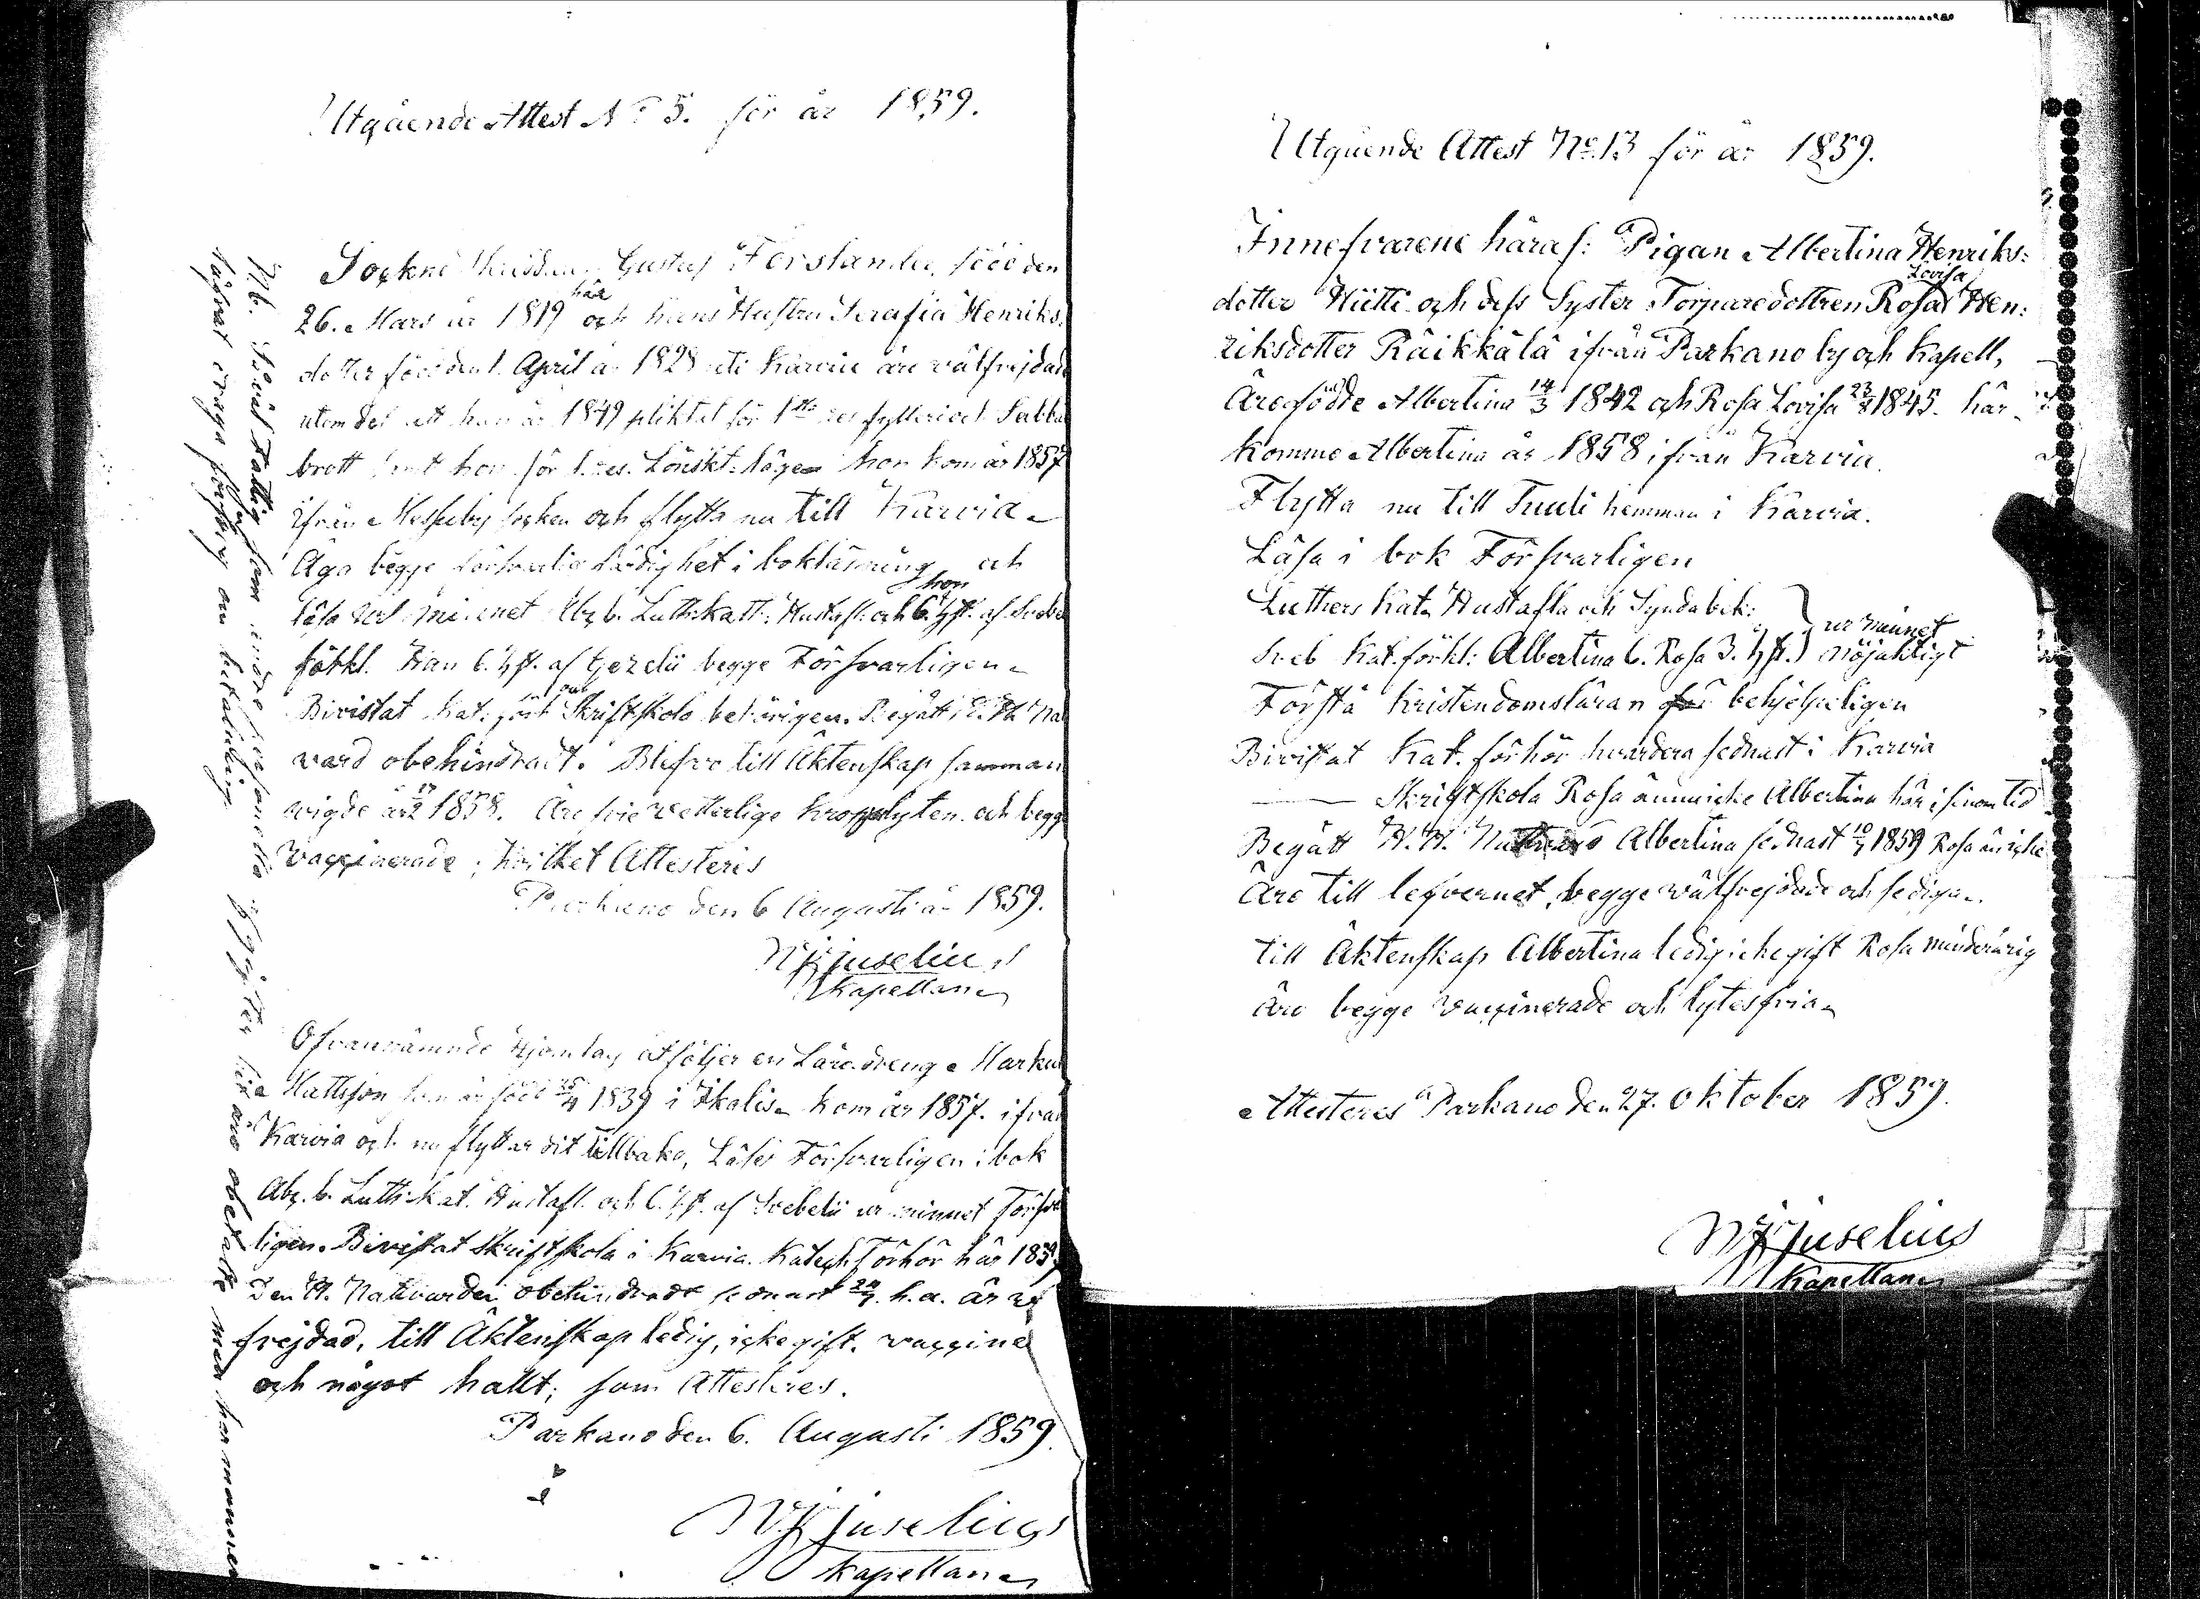 Utgående Attest No 5. för år 1859.
Sockne Skräddaren Gustaf Forslander, född den
26. Mars år 1819 här och hans Hustru Serafia Henriks-
dotter född den 1. April år 1828 uti Karvia äro välfrejdade
utom det att han år 1849 pliktat för 1sta resfylleri och Sabbats
brott samt hon för 1. res. Lönskt-läge hon kom år 1857
ifrån Messuby socken och flytta nu till Karvia
Äga begge försvarlig färdighet i bokläsning och
läsa ur minnet Abc b. Luth: katt: Hustafl: och hon 6. hft. af Svebe
förkl. Han 6. hft. af Gezelii begge Försvarligen
Bivistat kat: förh och Skriftskola behörigen. Begått H. H. Natt
vard obehindradt. Blefvo till Äktenskap samman
vigde 1858. Äro frie vetterlige kroppslyten och begge
vaccinerade; hvilket Attesteris
Parkano den 6 Augusti år 1859.
W K Juselius
Kapellan
Ofvannämnde hjonlag åtföljer en Läredreng Markus
Mattsson som är född 25/4 1839 i Ikalis kom år 1857. ifrån
Karvia och nu flyttar dit tillbaka, Läser Försvarligen i bok
Abc. b. Luth: kat. Hustafl. och 6. hft. af Svebelii ur minnet Försvar
ligen. Bivistat Skriftskola i Karvia. Katech. Förhör här 1859
Den H. Nattvarden obehindradt sednast 24/7. h. a. är väl
frejdad, till Äktenskap ledig, icke gift. vaccine
och något halt; som Attesteres.
Parkano den 6. Augusti 1859.
W K Juselius
Kapellan
N.b. Såväl Fattig som andre personella utgifter här äro obetalte men har mannen
Utgående Attest No. 13 för år 1859.
Innefvarene häraf: Pigan Albertina Henriks:
dotter Hütti och dess Syster Torparedottren Rosa Lovisa Hen:
riksdotter Räikkälä ifrån Parkano by och Kapell,
Äro födde Albertina 14/3 1842 och Rosa Lovisa 23/8 1845. här
komme Albertina år 1858 ifrån Karvia.
Flytta nu till Tuuli hemman i Karvia.
Läsa i bok Försvarligen
Luthers Kat. Hustafla och Syndabek:
Sveb Kat. förkl: Albertina 6. Rosa 3. hft. } ur minnet nöjaktigt
Förstå Kristendomsläran behjelpeligen
Bivistat Kat. förhör hvardera sednast i Karvia
—— Skriftskola Rosa ännu icke Albertina här i sinom tid
Begått H. H. Nattvard Albertina sednast 10/7 1859 Rosa än icke
Äro till lefvernet begge välfrejdade och sediga.
till Äktenskap Albertina ledig icke gift Rosa minderårig
äro begge vaccinerade och lytesfria
Attesteres Parkano den 27. Oktober 1859.
W K Juselius
Kapellan